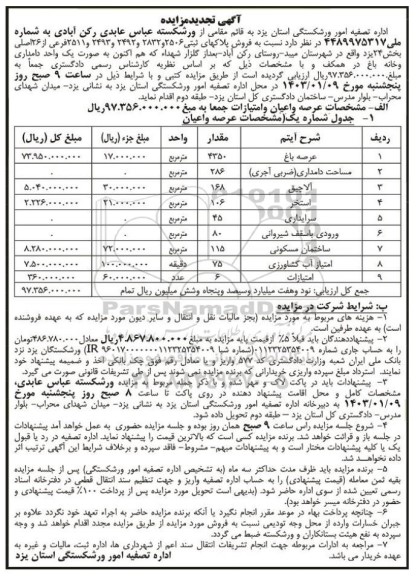 آگهی تجدیدمزایده
اداره تصفیه امور ورشکستگی استان یزد به قائم مقامی از ورشکسته عباس عابدی رکن آبادی به شماره
ملی ۴۴۸۹۹۷۵۳۱۷ در نظر دارد نسبت به فروش پلاکهای ثبتی ۲۵۰۶و۲۸۳۲و ۲۴۹۲و ۲۴۹۳ و۲۵۱۱فرعی از۲۶اصلی
بخش۲۴یزد واقع در شهرستان میبد-روستای رکن آباد-بعداز گلزار شهداء که هم اکنون به صورت یک واحد دامداری
وخانه باغ در همکف و با مشخصات ذیل که بر اساس نظریه کارشناس رسمی دادگستری جمعاً به
مبلغ ۹۷.۳۵۶.۰۰۰.۰۰۰ریال ارزیابی گردیده است از طریق مزایده کتبی و با شرایط ذیل در ساعت ۹ صبح روز
پنجشنبه مورخ ۱۴۰۳/۰۱/۰۹ در محل اداره تصفیه امور ورشکستگی استان یزد به نشانی یزد- میدان شهدای
محراب- بلوار مدرس- ساختمان دادگستری کل استان یزد- طبقه دوم اقدام نماید.
الف- مشخصات عرصه واعیان وامتیازات جمعا به مبلغ ۹۷.۳۵۶.۰۰۰.۰۰۰ریال
۱- جدول شماره یک(مشخصات عرصه واعیان
ردیف شرح آیتم مقدار واحد مبلغ جزء (ریال) مبلغ کل (ریال)
۱ عرصه باغ ۴۳۵۰ مترمربع ۱۷.۰۰۰.۰۰۰ ۷۳.۹۵۰.۰۰۰.۰۰۰
۲ مساحت دامداری(ضربی آجری) ۲۸۶ مترمربع - -
۳ آلاچیق ۱۶۸ مترمربع ۳۰.۰۰۰.۰۰۰ ۵.۰۴۰.۰۰۰.۰۰۰
۴ استخر ۱۰۶ مترمربع ۲۱.۰۰۰.۰۰۰ ۲.۲۲۶.۰۰۰.۰۰۰
۵ سرایداری ۴۵ مترمربع - -
۶ ورودی باسقف شیروانی ۸۰ مترمربع - -
۷ ساختمان مسکونی ۱۱۵ مترمربع ۷۲.۰۰۰.۰۰۰ ۸.۲۸۰.۰۰۰.۰۰۰
۸ امتیاز آب کشاورزی ۷۵ دقیقه ۱۰۰.۰۰۰.۰۰۰ ۷.۵۰۰.۰۰۰.۰۰۰
۹ امتیازات ۶ عدد ۶۰.۰۰۰.۰۰۰ ۳۶۰.۰۰۰.۰۰۰
جمع کل ارزیابی: نود وهفت میلیارد وسیصد وپنجاه وشش میلیون ریال تمام ۹۷.۳۵۶.۰۰۰.۰۰۰
ب: شرایط شرکت در مزایده
۱- هزینه های مربوط به مورد مزایده (بجز مالیات نقل و انتقال و سایر دیون مورد مزایده که به عهده فروشنده
است) به عهده طرفین است.
۲- پیشنهاددهندگان باید قبلاً ۵٪ از قیمت پایه مزایده به مبلغ ۴.۸۶۷.۸۰۰.۰۰۰ریال معادل ۴۸۶.۷۸۰.۰۰۰تومان
ورشکستگان یزد نزد
بانک ملی ایران شعبه وزارت دادگستری کد ۵۷۷ واریز و یا معادل رقم فوق چک بانکی اخذ و ضمیمه پیشنهاد خود
نمایند. استرداد مبلغ سپرده واریزی خریدارانی که برنده مزایده نمی شوند پس از طی تشریفات قانونی صورت می گیرد.
۳- پیشنهادات باید در پاکت لاک و مهر شده و با ذکر جمله مربوط به مزایده ورشکسته عباس عابدی،
مشخصات کامل و محل اقامت پیشنهاد دهنده در روی پاکت تا ساعت ۸ صبح روز پنجشنبه مورخ
۱۴۰۳/۰۱/۰۹ به دبیرخانه اداره تصفیه امور ورشکستگی استان یزد به نشانی یزد- میدان شهدای محراب- بلوار
مدرس- دادگستری کل استان یزد – طبقه دوم تحویل داده شود.
۴- شروع جلسه مزایده راس ساعت ۹ صبح همان روز بوده و جلسه مزایده حضوری به عمل خواهد آمد پیشنهادات
در جلسه باز و قرائت خواهد شد. برنده مزایده کسی است که بالاترین قیمت را پیشنهاد نماید. اداره تصفیه در رد یا قبول
یک یا کلیه پیشنهادات مختار است و به پیشنهادات مبهم- مشروط- فاقد سپرده و برخلاف شرایط این آگهی ترتیب اثر
داده نخواهد شد.
۵- برنده مزایده باید ظرف مدت حداکثر سه ماه (به تشخیص اداره تصفیه امور ورشکستگی) پس از جلسه مزایده
بقیه ثمن معامله (قیمت پیشنهادی) را به حساب اداره تصفیه واریز و جهت تنظیم سند انتقال قطعی در دفترخانه اسناد
رسمی تعیین شده از سوی اداره حاضر شود. (بدیهی است تحویل مورد مزایده پس از پرداخت ۱۰۰٪ قیمت پیشنهادی و
حضور در دفترخانه میسر خواهد بود).
۶- چنانچه پرداخت بهاء در موعد مقرر انجام نگیرد یا آنکه برنده مزایده حاضر به اجراء تعهد خود نگردد علاوه بر
جبران خسارات وارده از محل وجه تودیعی نسبت به فروش مورد مزایده از طریق مزایده مجدد اقدام خواهد شد و وجه
سپرده به نفع هیئت بستانکاران و ورشکسته ضبط می گردد.
۷- مراجعه به ادارات مربوطه جهت انجام تشریفات انتقال سند اعم از شهرداری ها، اداره ثبت، مالیات و غیره به
عهده خریدار می باشد.
اداره تصفیه امور ورشکستگی استان یزد